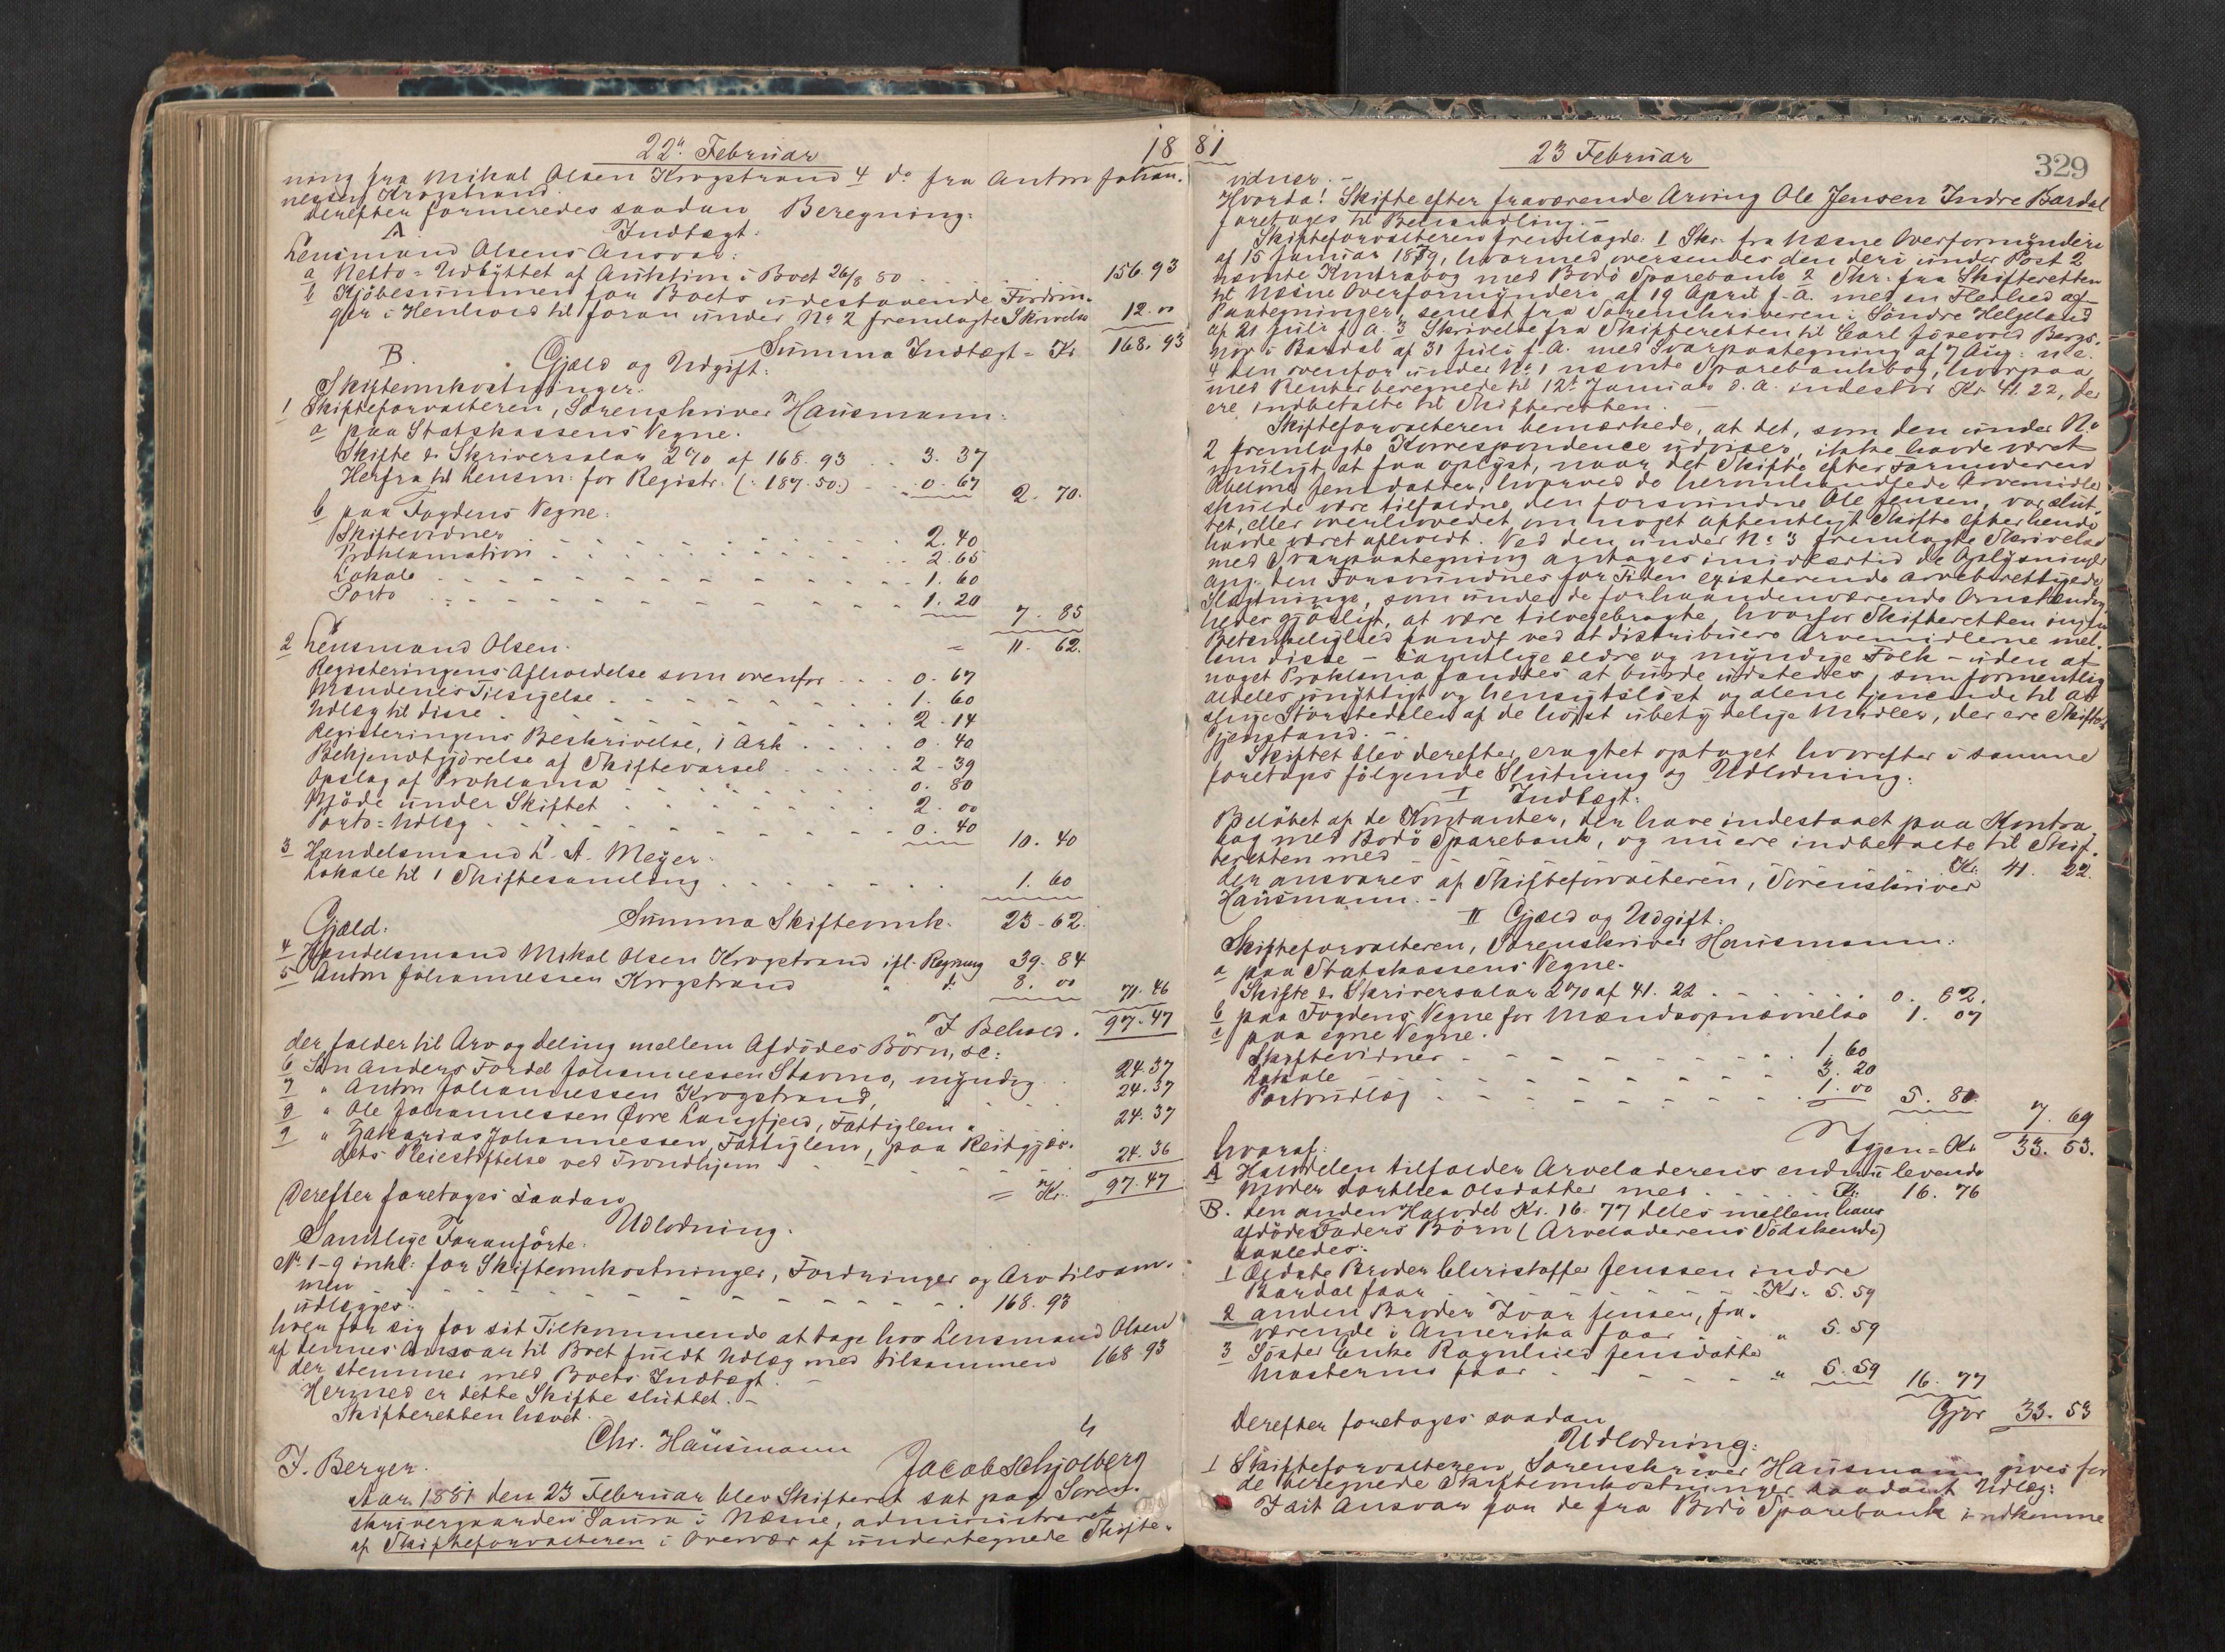 22de Februar
18
ning fra Mikal Olsen Krogstrand 4 do fra Anton Johan-
nessen Krogstrand.
Derefter formeredes saadan Beregning:
A. Indtægt:
Lensmand Olsens Ansvar:
a Netto-Udbyttet af Auktion i Boet 26/8 80 . . . 156.93
b Kjöbesummen for Boets udestaaende Fordrin-
ger i Henhold til foran under No 2 fremlagte Skrivelse 12.00
Summa Indtægt = Kr 168.93
B. Gjæld og Udgift:
Skifteomkostninger.
1 Skifteforvalteren, Sorenskriver Hausmann:
a paa Statskassens Vegne.
Skifte & Skriversalær 2% af 168.93 . . 3.37
Herfra til Lensm: for Registr. (: 187.50:) . . 0.67 2.70.
b paa Fogdens Vegne:
Skiftevidner . . . 2.40
Proklamation . . . 2.65
Lokale . . . 1.60
Porto . . . 1.20 7.85
= 11.62.
2 Lensmand Olsen.
Registeringens Afholdelse som ovenfor . . . 0.67
Mændenes Tilsigelse . . . 1.60
Udlæg til disse . . . 2.14
Registeringens Beskrivelse, 1 Ark . . . 0.40
Bekjendtgjörelse af Skiftevarsel . . . 2.39
Opslag af Proklama . . . 0.80
Möde under Skiftet . . . 2.00
Porto-Udlæg . . . 0.40 10.40
3 Handelsmand L. A. Meyer.
Lokale til 1 Skiftesamling . . . 1.60
Summa Skifteomk. 23.62.
Gjæld:
4 Handelsmand Mikal Olsen Krogstrand ifl. Regning 39.84
5 Anton Johannessen Krogstrand " do 8.00 71.46
I Behold. 97.47
der falder til Arv og deling mellem Afdödes Börn, sc:
6 Sön Anders Fordel Johannessen Stavnes, myndig . . 24.37
7 " Anton Johannessen Krogstrand, " . . 24.37
8 " Ole Johannessen Övre Langfjeld, Fattiglem " . . 24.37
9 " Zakarias Johannessen, Fattiglem, paa Reitgjær-
dets Pleiestiftelse ved Trondhjem . . . 24.36
= Kr. 97.47
Derefter foretoges saadan
Udlodning.
Samtlige Foranförte.
No 1-9 inkl: for Skifteomkostninger, Fordringer og Arv tilsam-
men . . . 168.93
udlægges:
hver for sig for sit Tilkommende at tage hos Lensmand Olsen
af dennes Ansvar til Boet fuldt Udlæg med tilsammen 168.93
der stemmer med Boets Indtægt.
Hermed er dette Skifte sluttet. -
Skifteretten hævet.
Chr. Hausmann
F. Berger.
Jacob Schjolberg
Aar 1881 den 23 Februar blev Skifteret sat paa Soren-
skrivergaarden Saura i Næsne, administreret
af Skifteforvalteren i Overvær af undertegnede Skifte-
81
23 Februar
329
vidner. -
Hvorda! Skifte efter fraværende Arving Ole Jensen Indre Bardal
foretoges til Behandling. -
Skifteforvalteren fremlagde: 1 Skr. fra Næsne Overformynderi
af 15 Januar 1879, hvormed oversendes den deri under Post 2
nævnte Kontrabog med Bodö Sparebank 2 Skr. fra Skifteretten
til Næsne Overformynderi af 19 April f. A. med en Flerhed af
Paategninger, senest fra Sorenskriveren i Söndre Helgeland
af 21 Juli f. A. 3 Skrivelse fra Skifteretten til Carl Bergs-
nör i Bardal af 31 Juli f. A. med Svarpaategning af 7 Aug: n. e.
4 den ovenfor under No 1 nævnte Sparebankbog, hvorpaa
med Renter beregnede til 12te Januar d. A. indestod Kr. 41.22, der
ere indbetalte til Skifteretten. -
Skifteforvalteren bemærkede, at det, som den under No
2 fremlagte Korrespondence udviser, ikke havde været
muligt at faa oplyst, naar det Skifte efter Farmoderen
Abelone Jensdatter, hvorved de heromhandlede Arvemidler
skulde være tilfaldne den forsvundne Ole Jensen, var slut-
tet, eller overhovedet om noget offentligt Skifte efter hende
havde været afholdt. Ved den under No 3 fremlagte Skrivelse
med Svarpaategning antages imidlertid de Oplysninger
ang. den Forsvundnes for Tiden existerende arveberettigede
Slægtninge, som under de forhaandenværende Omstændig-
heder gjörligt, at være tilvejebragte, hvorfor Skifteretten ingen
Betænkelighed fandt ved at distribuere Arvemidlerne mel-
lem disse - samtlige ældre og myndige Folk - uden at
noget Proklama fandtes at burde udstedes, som formentlig
aldeles unyttigt og hensigtslöst og alene tjenende til at
sluge Störstedelen af de höist ubetydelige Midler, der ere Skiftets
Gjenstand. -
Skiftet blev derefter eragtet optaget hvorefter i samme
foretoges fölgende Slutning og Udlodning:
I Indtægt:
Belöbet af de Kontanter, der have indestaaet paa Kontra-
bog med Bodö Sparebank, og nu ere indbetalte til Skif-
teretten med . . . Kr. 41.22.
der ansvares af Skifteforvalteren, Sorenskriver
Hausmann. -
II Gjæld og Udgift:
Skifteforvalteren, Sorenskriver Hausmann:
a paa Statskassens Vegne.
Skifte & Skriversalær 2% af 41.22 . . . 0.82.
b paa Fogdens Vegne for Mændsopnævnelse 1.07
c paa egne Vegne.
Skiftevidner . . . 1.60
Lokale . . . 3.20
Portoudlæg . . . 1.00 5.80 7.69
Igjen = Kr. 33.53.
hvoraf:
A Halvdelen tilfalder Arveladerens endnu levende
Moder Dorthea Olsdatter med . . . Kr. 16.76
B. den anden Halvdel Kr. 16.77 deles mellem hans
afdöde Faders Börn (Arveladerens Södskende)
saaledes:
1 Ældste Broder Christoffer Jenssen indre
Bardal faar . . . Kr. 5.59
2 anden Broder Ivar Jensen, fra-
værende i Amerika faar . . " 5.59
3 Söster Enke Ragnhild Jensdatter
Masternes faar . . . " 5.59 16.77
Gjör 33.53
Derefter foretoges saadan
Udlodning:
1 Skifteforvalteren, Sorenskriver Hausmann gives for
de beregnede Skifteomkostninger saadant Udlæg:
I sit Ansvar for de fra Bodö Sparebank indkomne